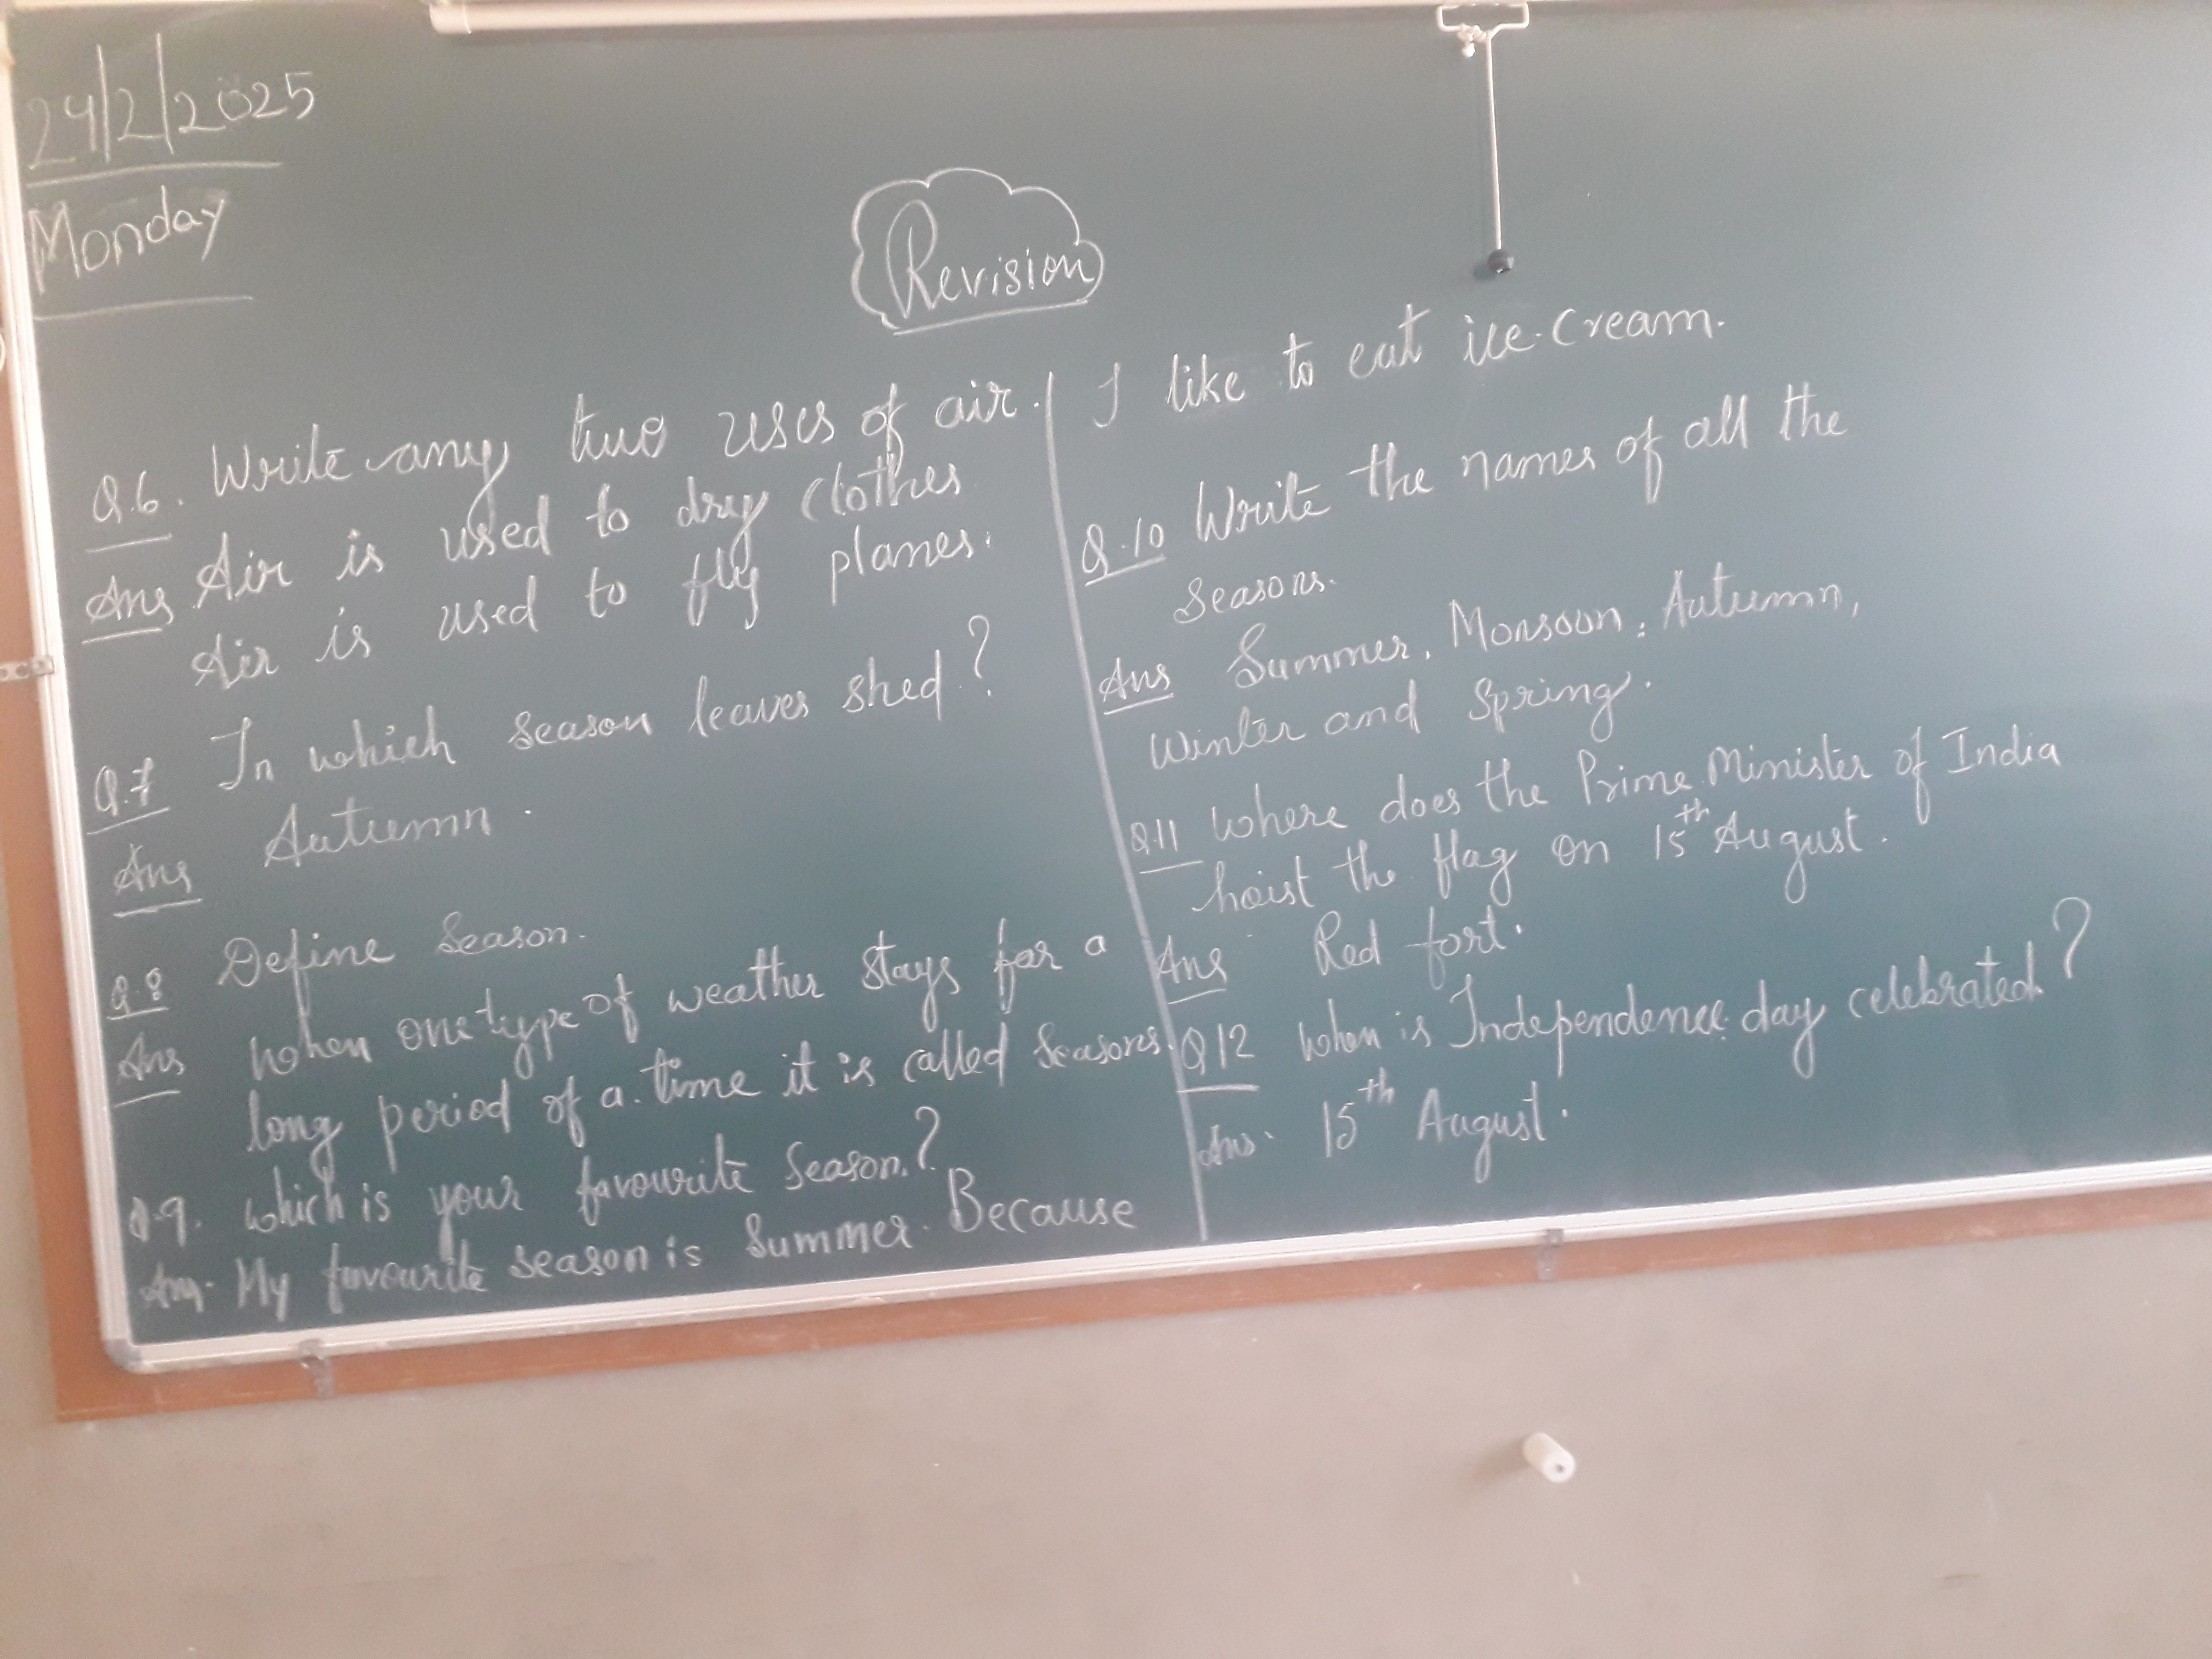 24/2/2025
Monday
Revision
Q.6. Write any two uses of air.
Ans Air is used to dry clothes
Air is used to fly planes.
Q.7 In which season leaves shed?
Ans Autumn.
Q.8 Define Season.
Ans When one type of weather stays for a
long period of a time it is called Seasons.
Q.9. which is your favourite Season.?
Ans. My favourite season is Summer. Because
I like to eat ice-cream.
Q.10 Write the names of all the
Seasons.
Ans Summer, Monsoon, Autumn,
Winter and Spring.
Q.11 Where does the Prime Minister of India
hoist the flag on 15th August.
Ans Red fort.
Q12 When is Independence day celebrated?
Ans. 15th August.